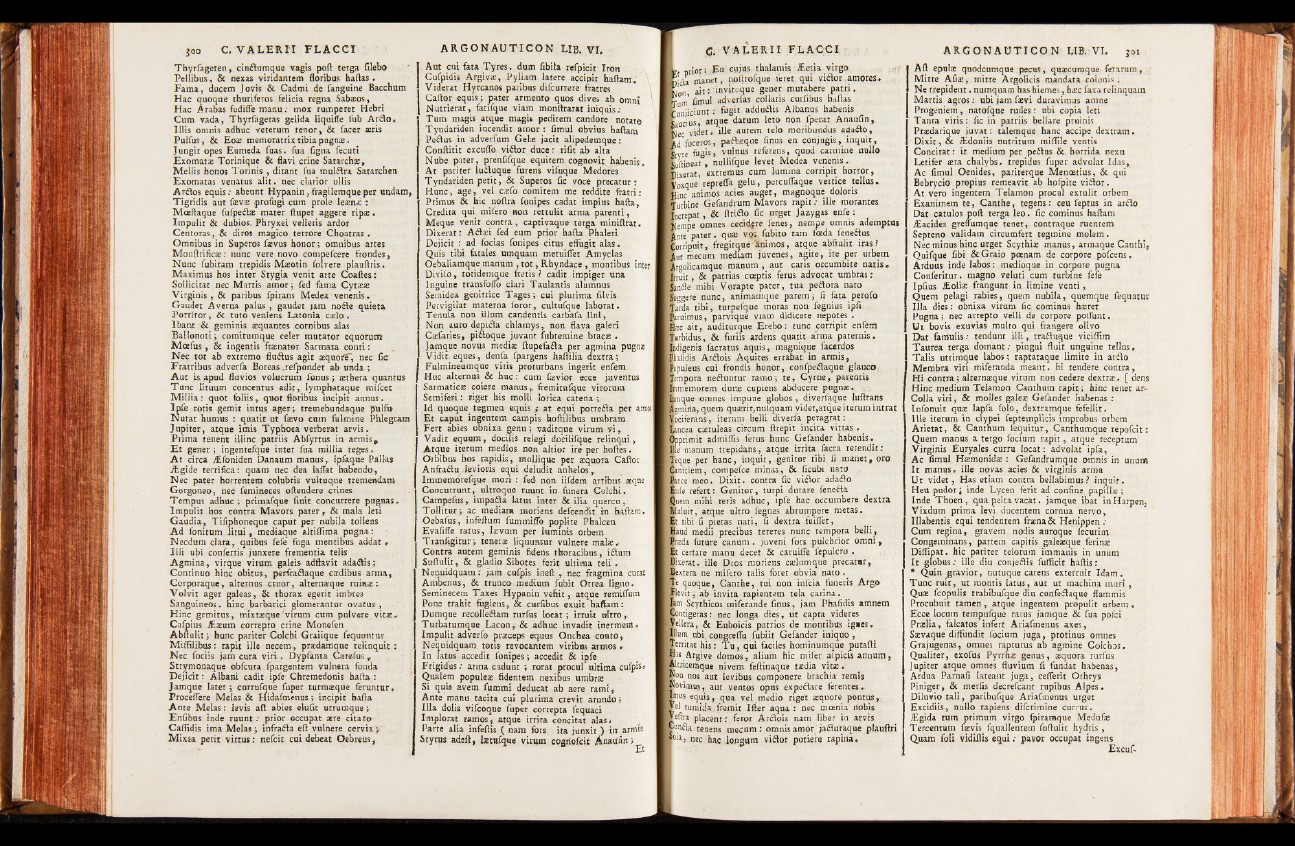 300 C. VALERII FLACCI
Thyrsageten, cinctumque vagis post terga silebo
Pellibus, & nexas viridantem floribus hastas.
Fama, ducem Jovis & Cadmi de sanguine Bacchum
Hac quoque thuriferos felicia regna Sabæos,
Hac Arabas fudisse manu: mox rumperet Hebri
Cum vada, Thyrsagetas gelida liquisse sub Arcto.
Illis omnis adhuc veterum tenor, & sacer æris
Pulsus, & Eoæ memoratrix tibia pugnæ.
Jungit opes Eumeda suas. sua signa secuti
Exomatæ Torinique & flavi crine Satarchæ,
Mellis honos Torinis, ditant sua mulctra Satarchen
Exomatas venatus alit. nec clarior ullis
Arctos equis: abeunt Hypanin, fragilemque per undam,
Tigridis aut sævæ profugi cum prole leænæ:
Mœstaque suspectæ mater stupet aggere ripæ.
Impulit & dubios. Phryxei velleris ardor
Centoras, & diros magico terrore Choatras.
Omnibus in Superos sævus honor; omnibus artes
Monstrificæ: nunc vere novo compescere frondes,
Nunc subitam trepidis Mæotin solvere plaustris.
Maximus hos inter Stygia venit arte Coastes:
Sollicitat nec Martis amor; sed fama Cytææ
Virginis, & paribus spirans Medea venenis.
Gaudet Averna palus, gaudet jam nocte quieta
Portitor, & tuto veniens Latonia cælo.
Ibant & geminis æquantes cornibus alas
Ballonoti; comitumque celer mutator equorum
Mœsus, & ingentis frænator Sarmata conti:
Nec tot ab extremo fluctus agit æquore, nec sic
Fratribus adversa Boreas respondet ab unda;
Aut is apud fluvios volucrum sonus; æthera quantus
Tunc lituum concentus adit, lymphataque miscet
Millia: quot foliis, quot floribus incipit annus.
Ipse rotis gemit intus ager; tremebundaque pulsu
Nutat humus: quatit ut sævo cum fulmine Phlegram
Jupiter, atque imis Typhoea verberat arvis.
Prima tenent illinc patriis Absyrtus in armis,
Et gener; ingentesque inter sua millia reges.
At circa Æsoniden Danaum manus, ipsaque Pallas
Ægide terrifica: quam nec dea lassat habendo,
Nec pater horrentem colubris vultuque tremendam
Gorgoneo, nec semineces ostendere crines
Tempus adhuc: primasque sinit concurrere pugnas.
Impulit hos contra Mavors pater, & mala leti
Gaudia, Tisiphoneque caput per nubila tollens
Ad sonitum litui, mediaque altissima pugna:
Necdum clara, quibus sese fuga mentibus addat.
Illi ubi confertis junxere frementia telis
Agmina, virque virum galeis adflavit adactis;
Continuo hinc obitus, perfractaque cædibus arma,
Corporaque, alternus cruor, alternæque ruinæ:
Volvit ager galeas, & thorax egerit imbres
Sanguineos. hinc barbarici glomerantur ovatus,
Hinc gemitus, mixtæque virum cum pulvere vitæ.
Caspius Æxeum correpto crine Monesen
Abstulit; hunc pariter Colchi Graiique sequuntur
Missilibus: rapit ille necem, prædamque relinquit:
Nec sociis jam cura viri. Dypsanta Caresus,
Strymonaque obscura spargentem vulnera funda
Dejicit: Albani cadit ipse Chremedonis hasta:
Jamque latet; currusque super turmæque feruntur.
Processere Melas & Hidasmenus; incipit hasta
Ante Melas: levis ast abies elusit utrumque;
Ensibus inde ruunt: prior occupat ære citato
Cassidis ima Melas; infracta est vulnere cervix;
Mixta perit virtus: nescit cui debeat Oebreus,
ARGONAUTICON LIB. VI.
Aut cui fata Tyres. dum sibila respicit Iron
Cuspidis Argivæ, Pyliam latere accipit hastam.
Viderat Hyrcanos paribus discurrere fratres
Castor equis; pater armento quos dives ab omni
Nutrierat, fatisque viam monstrarat iniquis:
Tum magis atque magis peditem candore notato
Tyndariden incendit amor: simul obvius hastam
Pectus in adversum Gelæ jacit alipedemque:
Constitit excusso victor duce: risit ab alta
Nube pater, prensisque equitem cognovit habenis.
At pariter luctuque furens visuque Medores
Tyndariden petit, & Superos sic voce precatur:
Hunc, age, vel cæso comitem me reddite fratri:
Primus & hic nostra sonipes cadat impius hasta,
Credita qui misero non rettulit arma parenti,
Meque venit contra, captivaque terga ministrat.
Dixerat: Actæi sed eum prior hasta Phaleri
Dejicit: ad socias sonipes citus effugit alas.
Quis tibi fatales umquam metuisset Amyclas
Oebaliamque manum, tot, Rhyndace, montibus inter
Diviso, totidemque fretis? cadit impiger una
Inguine transfosso clari Taulantis alumnus
Semidea genitrice Tages; cui plurima silvis
Pervigilat materna soror, cultusque laborat.
Tenuia non illum candentis carbasa lini,
Non auro depicta chlamys, non flava galeri
Cæsaries, pictoque juvant subtemine bracæ.
Jamque novus mediæ stupefacta per agmina pugnæ
Vidit eques, densa spargens hastilia dextra;
Fulmineumque viris proturbans ingerit ensem
Huc alternus & huc: cum sævior ecce juventus
Sarmaticæ coiere manus, fremitusque virorum
Semiferi: riget his molli lorica catena;
Id quoque tegmen equis; at equi porrecta per armos
Et caput ingentem campis hostilibus umbram
Fert abies obnixa genu; vaditque virum vi,
Vadit equum, docilis relegi docilisque relinqui,
Atque iterum medios non altior ire per hostes.
Orbibus hos rapidis, mollique per æquora Castor
Anfractu levioris equi deludit anhelos,
Immemoresque mori: sed non iisdem artibus æque
Concurrunt, ultroque ruunt in funera Colchi.
Campesus, impacta latus inter & ilia quercu,
Tollitur; ac mediam moriens descendit in hastem.
Oebasus, infestum summisso poplite Phalcen
Evasisse ratus, lævum per luminis orbem
Transigitur; teneræ liquuntur vulnere malæ.
Contra autem geminis fidens thoracibus, ictum
Sustulit, & gladio Sibotes ferit ultima teli.
Nequidquam: jam cuspis inest, nec fragmina curat
Ambenus, & trunco medium subit Otrea ligno.
Seminecem Taxes Hypanin vehit, atque remissum
Pone trahit fugiens, & cursibus exuit hastam:
Dumque recollectam rursus locat; irruit ultro,
Turbatumque Lacon, & adhuc invadit inermem.
Impulit adverso præceps equus Onchea conto,
Nequidquam totis revocantem viribus armos.
In latus accedit sonipes; accedit & ipse
Frigidus: arma cadunt; rorat procul ultima cuspis:
Qualem populeæ fidentem nexibus umbræ
Si quis avem summi deducat ab aere rami,
Ante manu tacita cui plurima crevit arundo;
Illa dolis viscoque super correpta sequaci
Implorat ramos, atque irrita concitat alas.
Parte alia infestis (nam fors ita junxit) in armis
Styrus adest, lætusque virum cognoscit Anausin;
Et
C. VALERII FLACCI
Et prior: En cujus thalamis Æetia virgo
manet, nostrosque feret qui victor amores.
Non, ait; invitoque gener mutabere patri.
Tum simul adversas collatis cursibus hastas
Conjiciunt: fugit adductis Albanus habenis
Saucius, atque datum leto non sperat Anausin,
Nec videt. ille autem telo moribundus adacto,
Ad soceros, pactæque sinus en conjugis, inquit,
Styre fugis, vulnus referens, quod carmine nullo
Sustineat, nullisque levet Medea venenis.
Dixerat, extremus cum lumina corripit horror,
Voxque repressa gelu, percussaque vertice tellus.
Hinc animos acies auget, magnoque doloris
Turbine Gesandrum Mavors rapit: ille morantes
Increpat, & stricto sic urget Jazygas ense:
Nempe omnes cecidere senes, nempe omnis ademptus
Ante pater. quæ vos subito tam fœda senectus
Corripuit, fregitque animos, atque abstulit iras?
Aut mecum mediam juvenes, agite, ite per urbem
Argolicamque manum, aut caris occumbite natis.
Irruit, & patrias cœptis ferus advocat umbras:
Sancte mihi Vorapte pater, tua pectora nato
Suggere nunc, animamque parem; si fata peroso
Tarda tibi, turpesque moras non segnius ipsi
Paruimus, parvique viam didicere nepotes.
Hæc ait, auditurque Erebo: tunc corripit ensem
Turbidus, & furiis ardens quatit arma paternis.
Indigenis sacratus aquis, magnique sacerdos
Phasidis Arctois Aquites errabat in armis,
Populeus cui frondis honor, conspectaque glauco
Tempora nectuntur ramo; te, Cyrne, parentis
Immemorem duræ cupiens abducere pugnæ.
Jamque omnes impune globos, diversaque lustrans
Agmina, quem quærit, nulquam videt, atque iterum intrat
Vociferans, iterum belli diversa peragrat:
Lancea caculeas circum strepit incita vittas.
Opprimit admissis ferus hunc Gesander habenis.
Ille manum trepidans, atque irrita sacra tetendit:
Teque per hanc, inquit, genitor tibi si manet, oro
Canitiem, compesce minas, & sicubi nato
Parce meo. Dixit. contra sic victor adacto
Ense refert: Genitor, turpi durare senecta
Quem mihi reris adhuc, ipse hac occumbere dextra
Maluit, atque ultro segnes abrumpere metas.
Et tibi si pietas nati, si dextra fuisset,
Haud medii precibus tereres nunc tempora belli,
Præda future canum. juveni sors pulchrior omni,
Et certare manu decet & caruisse sepulcro.
Dixerat. ille Deos moriens cælumque precatur,
Dextera ne misero talis foret obvia nato.
Te quoque, Canthe, tui non inscia funeris Argo
Flevit; ab invita rapientem tela carina.
Jam Scythicos miserande sinus, jam Phasidis amnem
Contigeras: nec longa dies, ut capta videres
Vellera, & Euboicis patrios de montibus ignes.
Illum ubi congressu subiit Gesander iniquo,
Territat his: Tu, qui faciles hominumque putasti
His Argive domos, alium hic miser aspicis annum,
Altricemque nivem festinaque tædia vitæ.
Non nos aut levibus componere brachia remis
Novimus, aut ventos opus expectare ferentes.
Imus equis, qua vel medio riget æquore pontus,
Vel tumida fremit Ister aqua: nec mœnia nobis
Vestra placent: feror Arctois nam liber in arvis
Cuncta tenens mecum: omnis amor jacturaque plaustri
Sola, nec hac longum victor potiere rapina.
ARGONAUTICON LIB. VI. 301
Ast epulæ quodcumque pecus, quæcumque ferarum,
Mitte Asiæ, mitte Argolicis mandata colonis:
Ne trepident. numquam has hiemes, hæc saxa relinquam
Martis agros: ubi jam sævi duravimus amne
Progeniem, natosque rudes: ubi copia leti
Tanta viris: sic in patriis bellare pruinis
Prædarique juvat: talemque hanc accipe dextram.
Dixit, & Ædoniis nutritum missile ventis
Concitat: it medium per pectus & horrida nexu
Letifer æra chalybs. trepidus super advolat Idas,
Ac simul Oenides, pariterque Menœtius, & qui
Bebrycio propius remeavit ab hospite victor.
At vero ingentem Telamon procul extulit orbem
Exanimem te, Canthe, tegens: ceu septus in arcto
Dat catulos post terga leo. sic cominus hastam
Æacides gressumque tenet, contraque ruentem
Septeno validam circumfert tegmine molem.
Nec minus hinc urget Scythiæ manus, armaque Canthi,
Quisque sibi & Graio pœnam de corpore poscens.
Arduus inde labos: medioque in corpore pugna
Conseritur. magno veluti cum turbine sese
Ipsius Æoliæ frangunt in limine venti,
Quem pelagi rabies, quem nubila, quemque sequatur
Illa dies: obnixa virum sic cominus hæret
Pugna; nec arrepto velli de corpore possunt.
Ut bovis exuvias multo qui frangere olivo
Dat famulis: tendunt illi, tractuque vicissim
Taurea terga domant: pingui fluit unguine tellus.
Talis utrimque labos: raptataque limite in arcto
Membra viri miseranda meant. hi tendere contra,
Hi contra; alternæque virum non cedere dextræ. [dens
Hinc medium Telamon Canthum rapit; hinc tenet ar-
Colla viri, & molles galeæ Gesander habenas:
Insonuit quæ lapsa solo, dextramque fefellit.
Ille iterum in clypei septemplicis improbus orbem
Arietat, & Canthum sequitur, Canthumque reposcit:
Quem manus a tergo socium rapit, atque receptum
Virginis Euryales curru locat: advolat ipsa,
Ac simul Hæmonidæ: Gesandrumque omnis in unum
It manus. ille novas acies & virginis arma
Ut videt, Has etiam contra bellabimus? inquit.
Heu pudor; inde Lycen ferit ad confine papillæ;
Inde Thoen, qua pelta vacat. jamque ibat in Harpen,
Vixdum prima levi ducentem cornua nervo,
Illabentis equi tendentem fræna & Henippen:
Cum regina, gravem nodis auroque securim
Congeminans, partem capitis galeæque ferinæ
Dissipat. hic pariter telorum immanis in unum
It globus: ille diu conjectis sufficit hastis:
* Quin gravior, nutuque carens exterruit Idam.
Tunc ruit, ut montis latus, aut ut machina muri,
Quæ scopulis trabibusque diu confectaque flammis
Procubuit tamen, atque ingentem propulit orbem.
Ecce locum tempusque ratus jamque & sua posci
Prælia, falcatos infert Ariasmenus axes,
Sævaque diffundit socium juga, protinus omnes
Grajugenas, omnes rapturus ab agmine Colchos.
Qualiter, exosus Pyrrhæ genus, æquora rursus
Jupiter atque omnes fluvium si fundat habenas,
Ardua Parnasi lateant juga, cesserit Othrys
Piniger, & mersis decrescant rupibus Alpes.
Diluvio tali, paribusque Ariasmenus urget
Excidiis, nullo rapiens discrimine currus.
Ægida tum primum virgo spiramque Medusæ
Tercentum sævis squallentem sustulit hydris,
Quam soli vidistis equi: pavor occupat ingens
Excus-